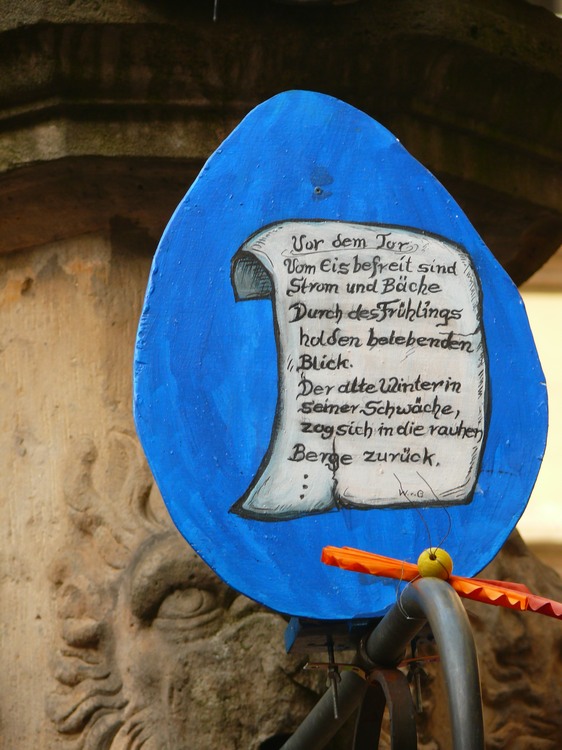 Vor dem Tor
Vom Eis befreit sind
Strom und Bäche
Durch des Frühlings
holden belebenden
Blick.
Der alte Winter in
seiner Schwäche,
zog sich in die rauhen
Berge zurück.